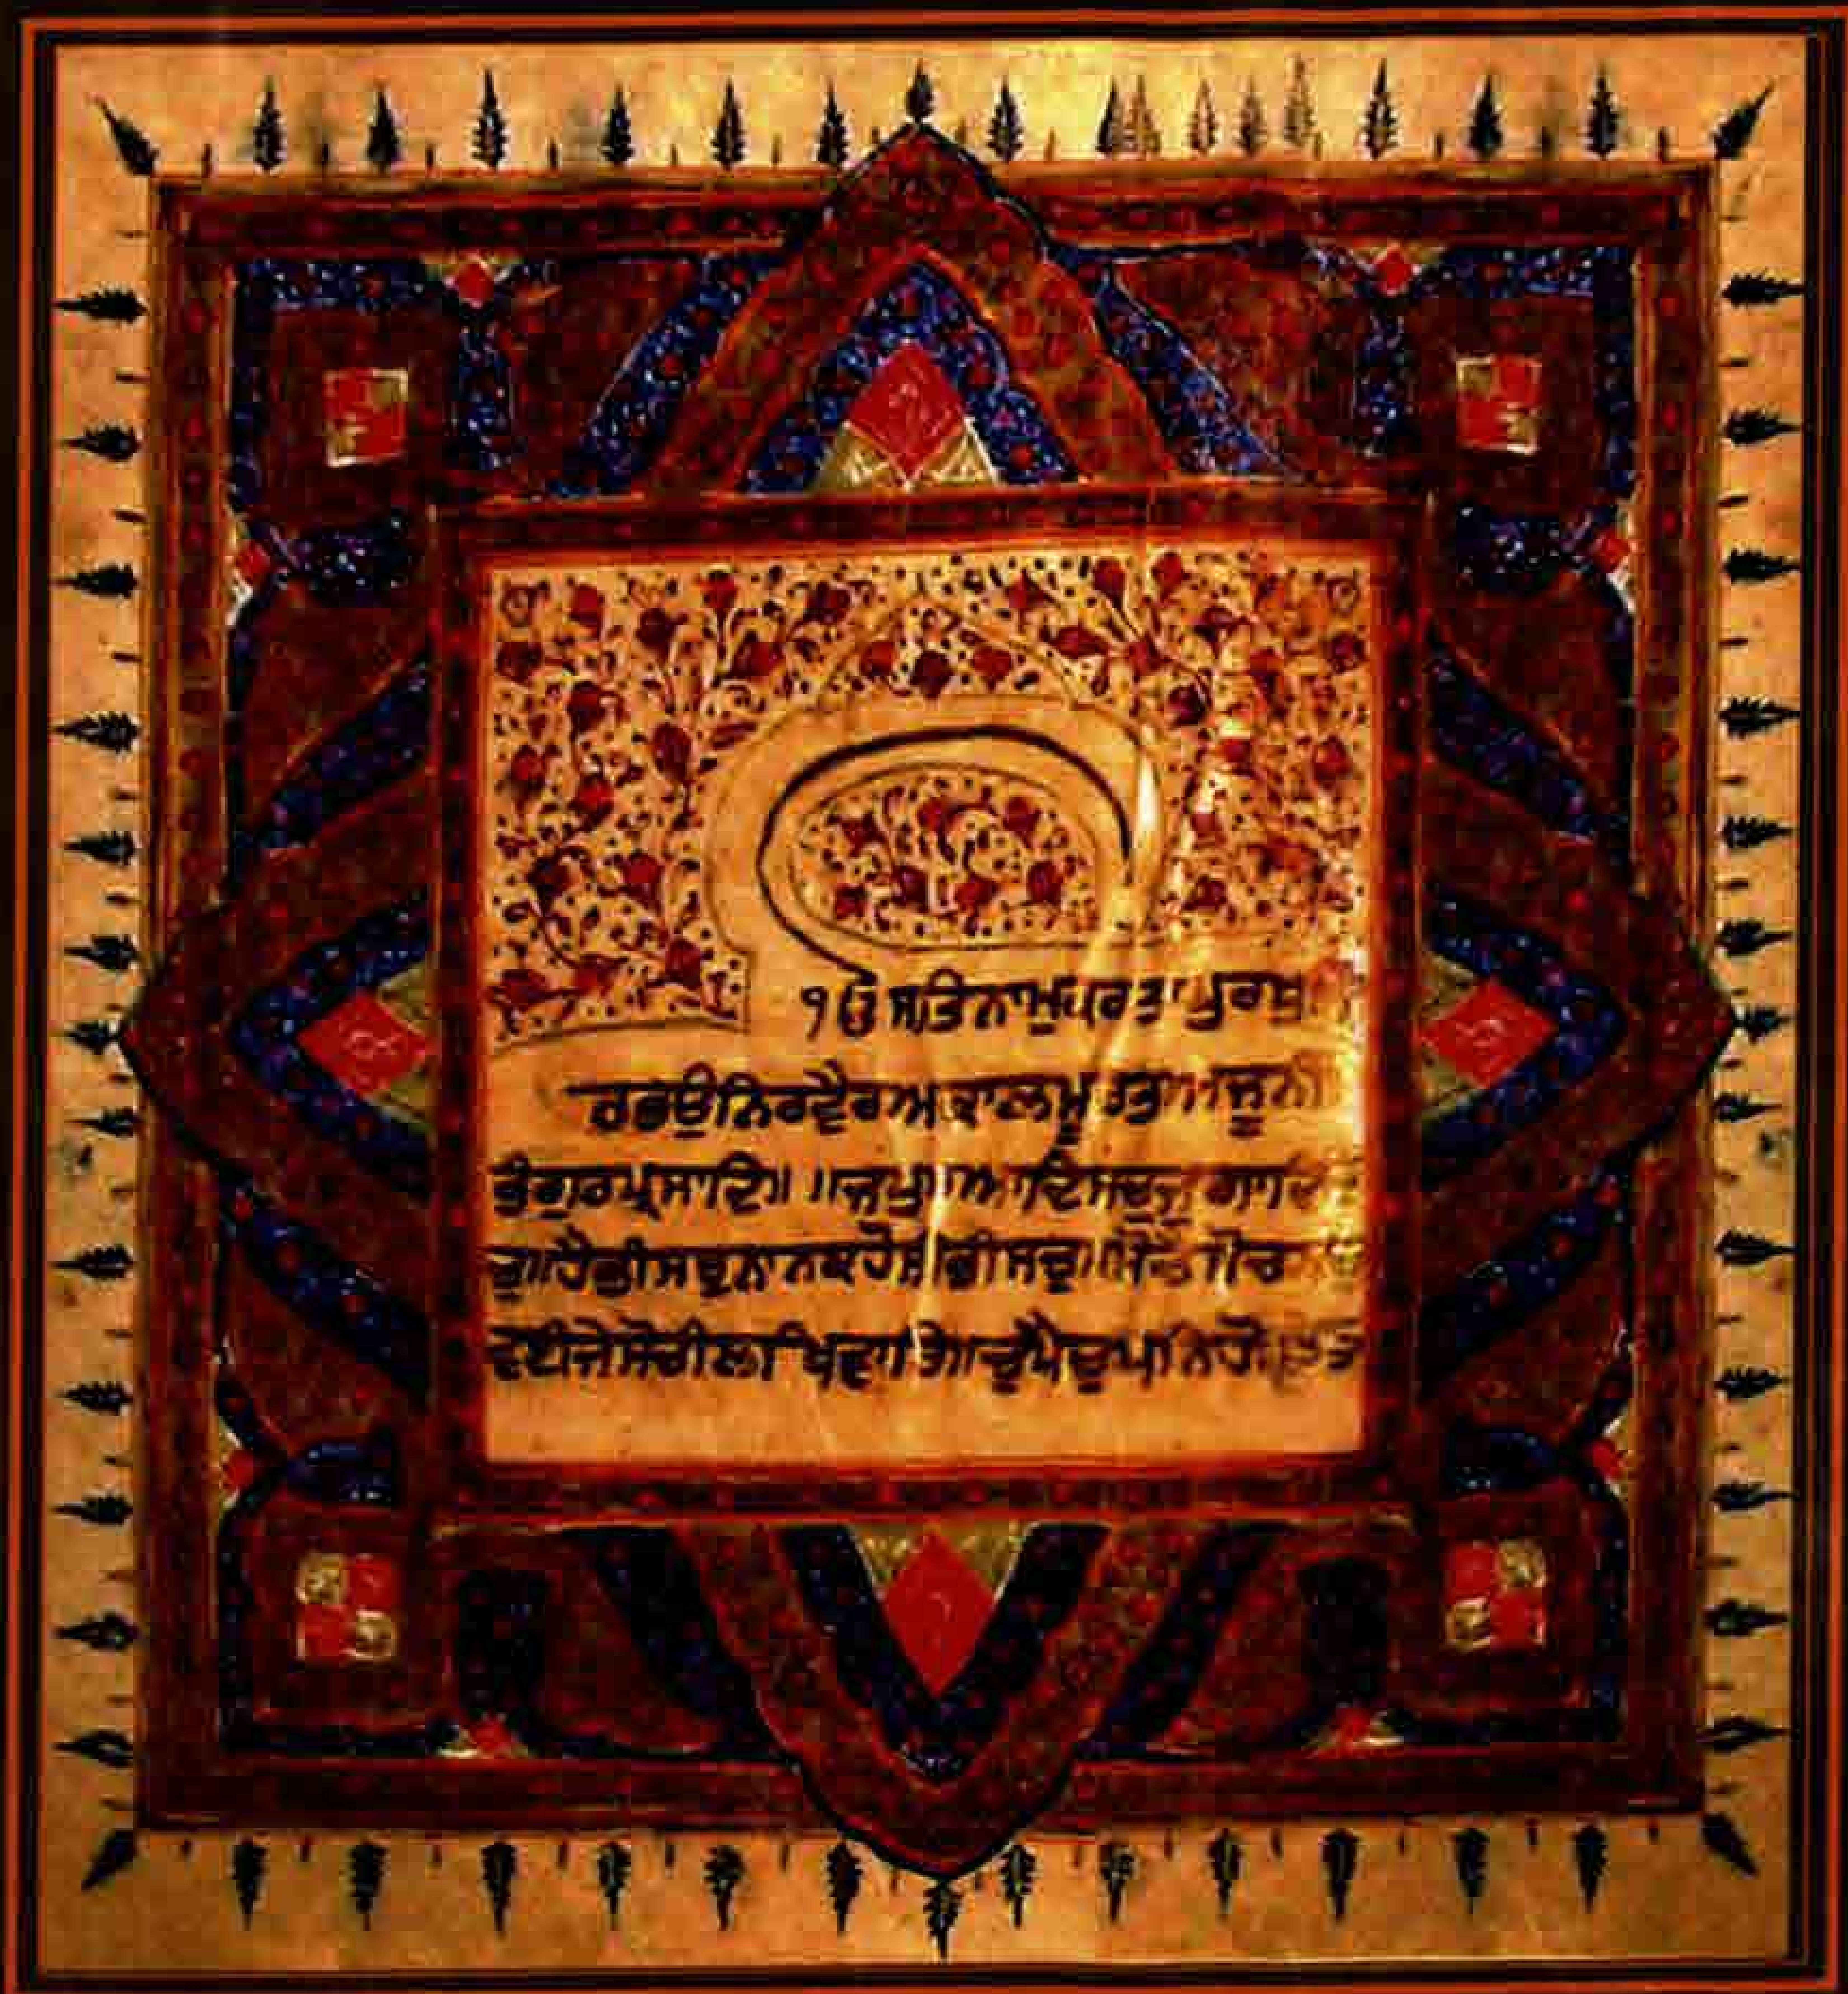 ੴ ਸਤਿਨਾਮੁਕਰਤਾਪੁਰਖੁ
ਰਭਉਨਿਰਵੈਰਅਕਾਲਮੂਰਤਿਅਜੂਨੀ
ਭੰਗੁਰਪ੍ਰਸਾਦਿ॥ ॥ਜਪੁ॥ਆਦਿਸਚੁਜੁਗਾਦਿ
ਚੁ॥ਹੈਭੀਸਚੁਨਾਨਕਹੋਸੀਭੀਸਚੁ॥ਸੋਚੈਸੋਚ
ਵਈਜੇਸੋਚੀਲਾਖਿਵਾਰ॥ਚੁਪੈਚੁਪਨਿਹੋ